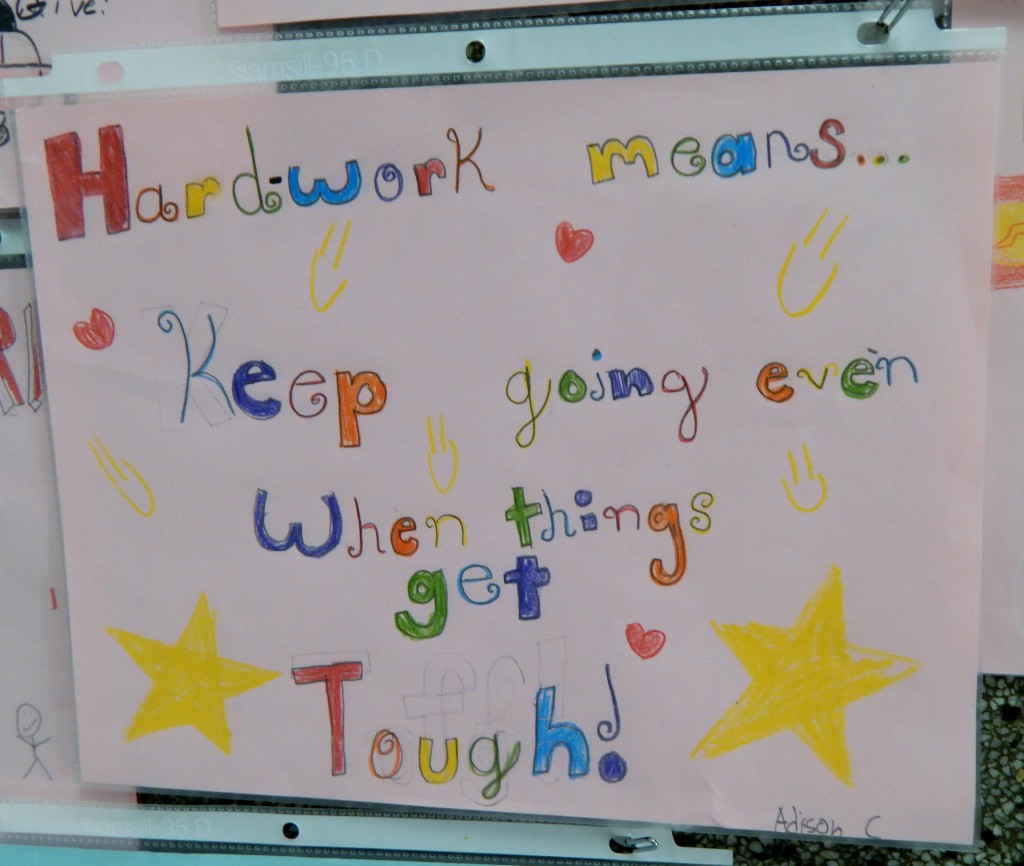 Give!
Tsamsill-96 D
Hard-work means...
Keep going even
When things
get
Tough!
Adison C